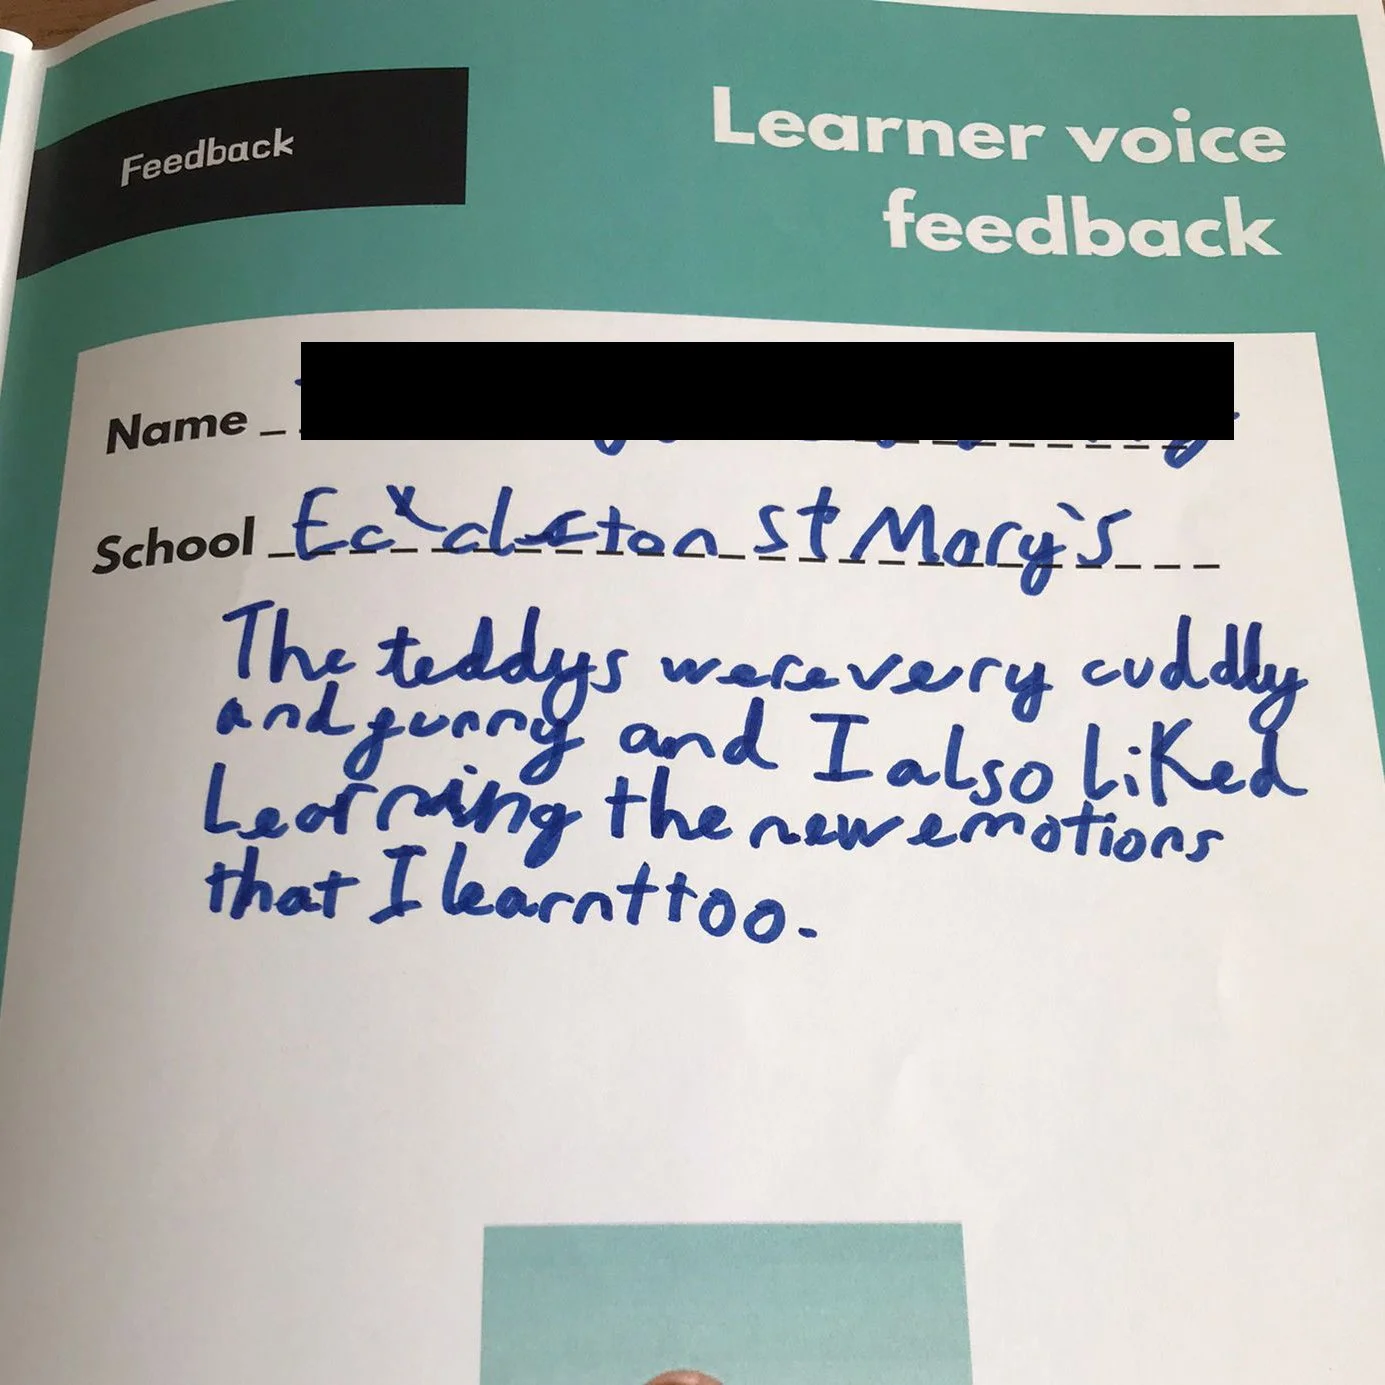 Feedback
Learner voice
feedback
Name
School Eccleston St Mary's
The teddys were very cuddly
and funny and I also liked
Learning the new emotions
that I learnt too.